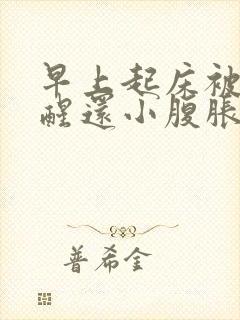 早上起床被
醒還小腹脹
普希金